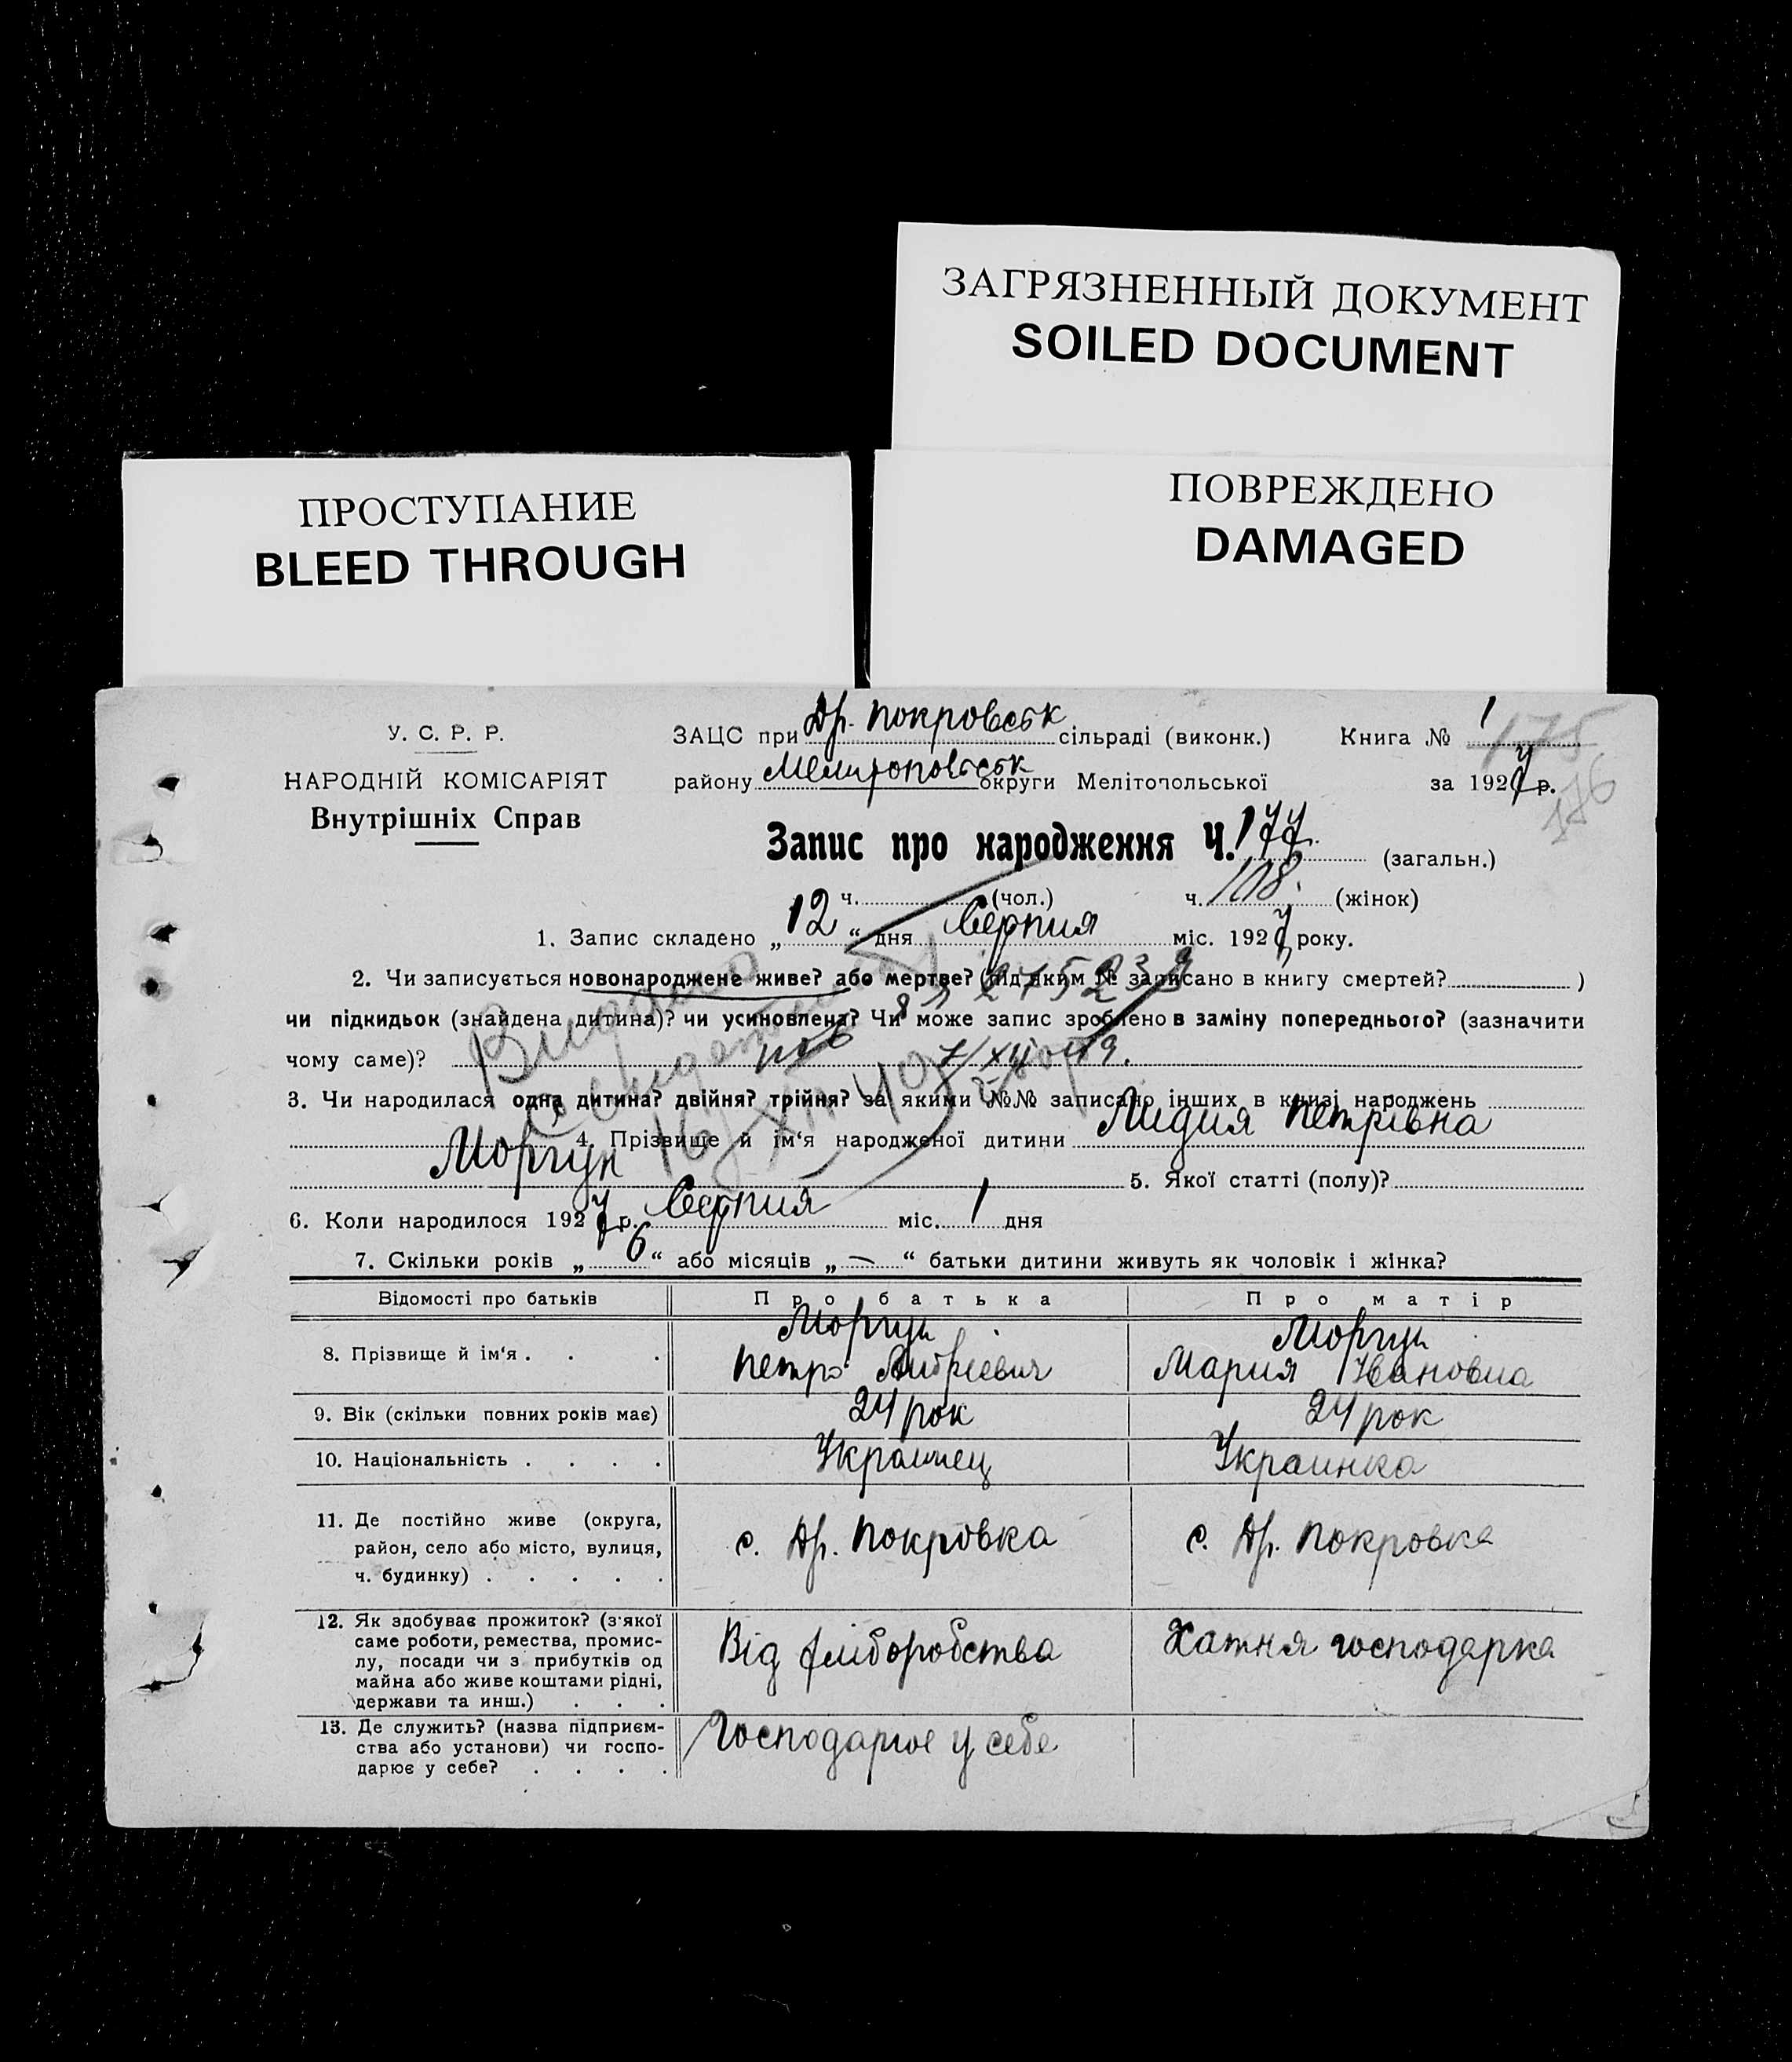 ЗАГРЯЗНЕННЫЙ ДОКУМЕНТ
SOILED DOCUMENT
ПРОСТУПАНИЕ
BLEED THROUGH
ПОВРЕЖДЕНО
DAMAGED
У. С. Р. Р.
НАРОДНІЙ КОМІСАРІЯТ
Внутрішніх Справ
ЗАЦС при Др. Покровськ сільраді (виконк.) Книга № 1
175
району округи Мелітопольської за 1927 р.
176
Запис про народження Ч. 177 (загальн.)
ч. (чол.) ч. 108. (жінок)
1. Запис складено „12“ дня Серпня міс. 1927 року.
2. Чи записується новонароджене живе? або мертве? (під яким № записано в книгу смертей? )
чи підкидьок (знайдена дитина)? чи усиновлена? Чи може запис зроблено в заміну попереднього? (зазначити
чому саме)?
3. Чи народилася одна дитина? двійня? трійня? за якими №№ записано інших в книзі народжень
4. Прізвище й ім‘я народженої дитини Лидия Петрівна
Моргун 5. Якої статті (полу)?
6. Коли народилося 1927 р. Серпня міс. 1 дня
7. Скільки років „6“ або місяців „—“ батьки дитини живуть як чоловік і жінка?
Відомості про батьків Про батька Про матір
8. Прізвище й ім‘я . . . Моргун Петро Андрієвич Моргун Мария Івановна
9. Вік (скільки повних років має) 24 рок 24 рок
10. Національність . . . . Украинец Украинка
11. Де постійно живе (округа,
район, село або місто, вулиця,
ч. будинку) . . . . .
с. Др. Покровка с. Др. Покровка
12. Як здобуває прожиток? (з‘якої
саме роботи, ремества, промис-
лу, посади чи з прибутків од
майна або живе коштами рідні,
держави та инш.) . . .
Від хліборобства Хатня господарка
13. Де служить? (назва підприєм-
ства або установи) чи госпо-
дарює у себе? . . . .
Господарює у себе